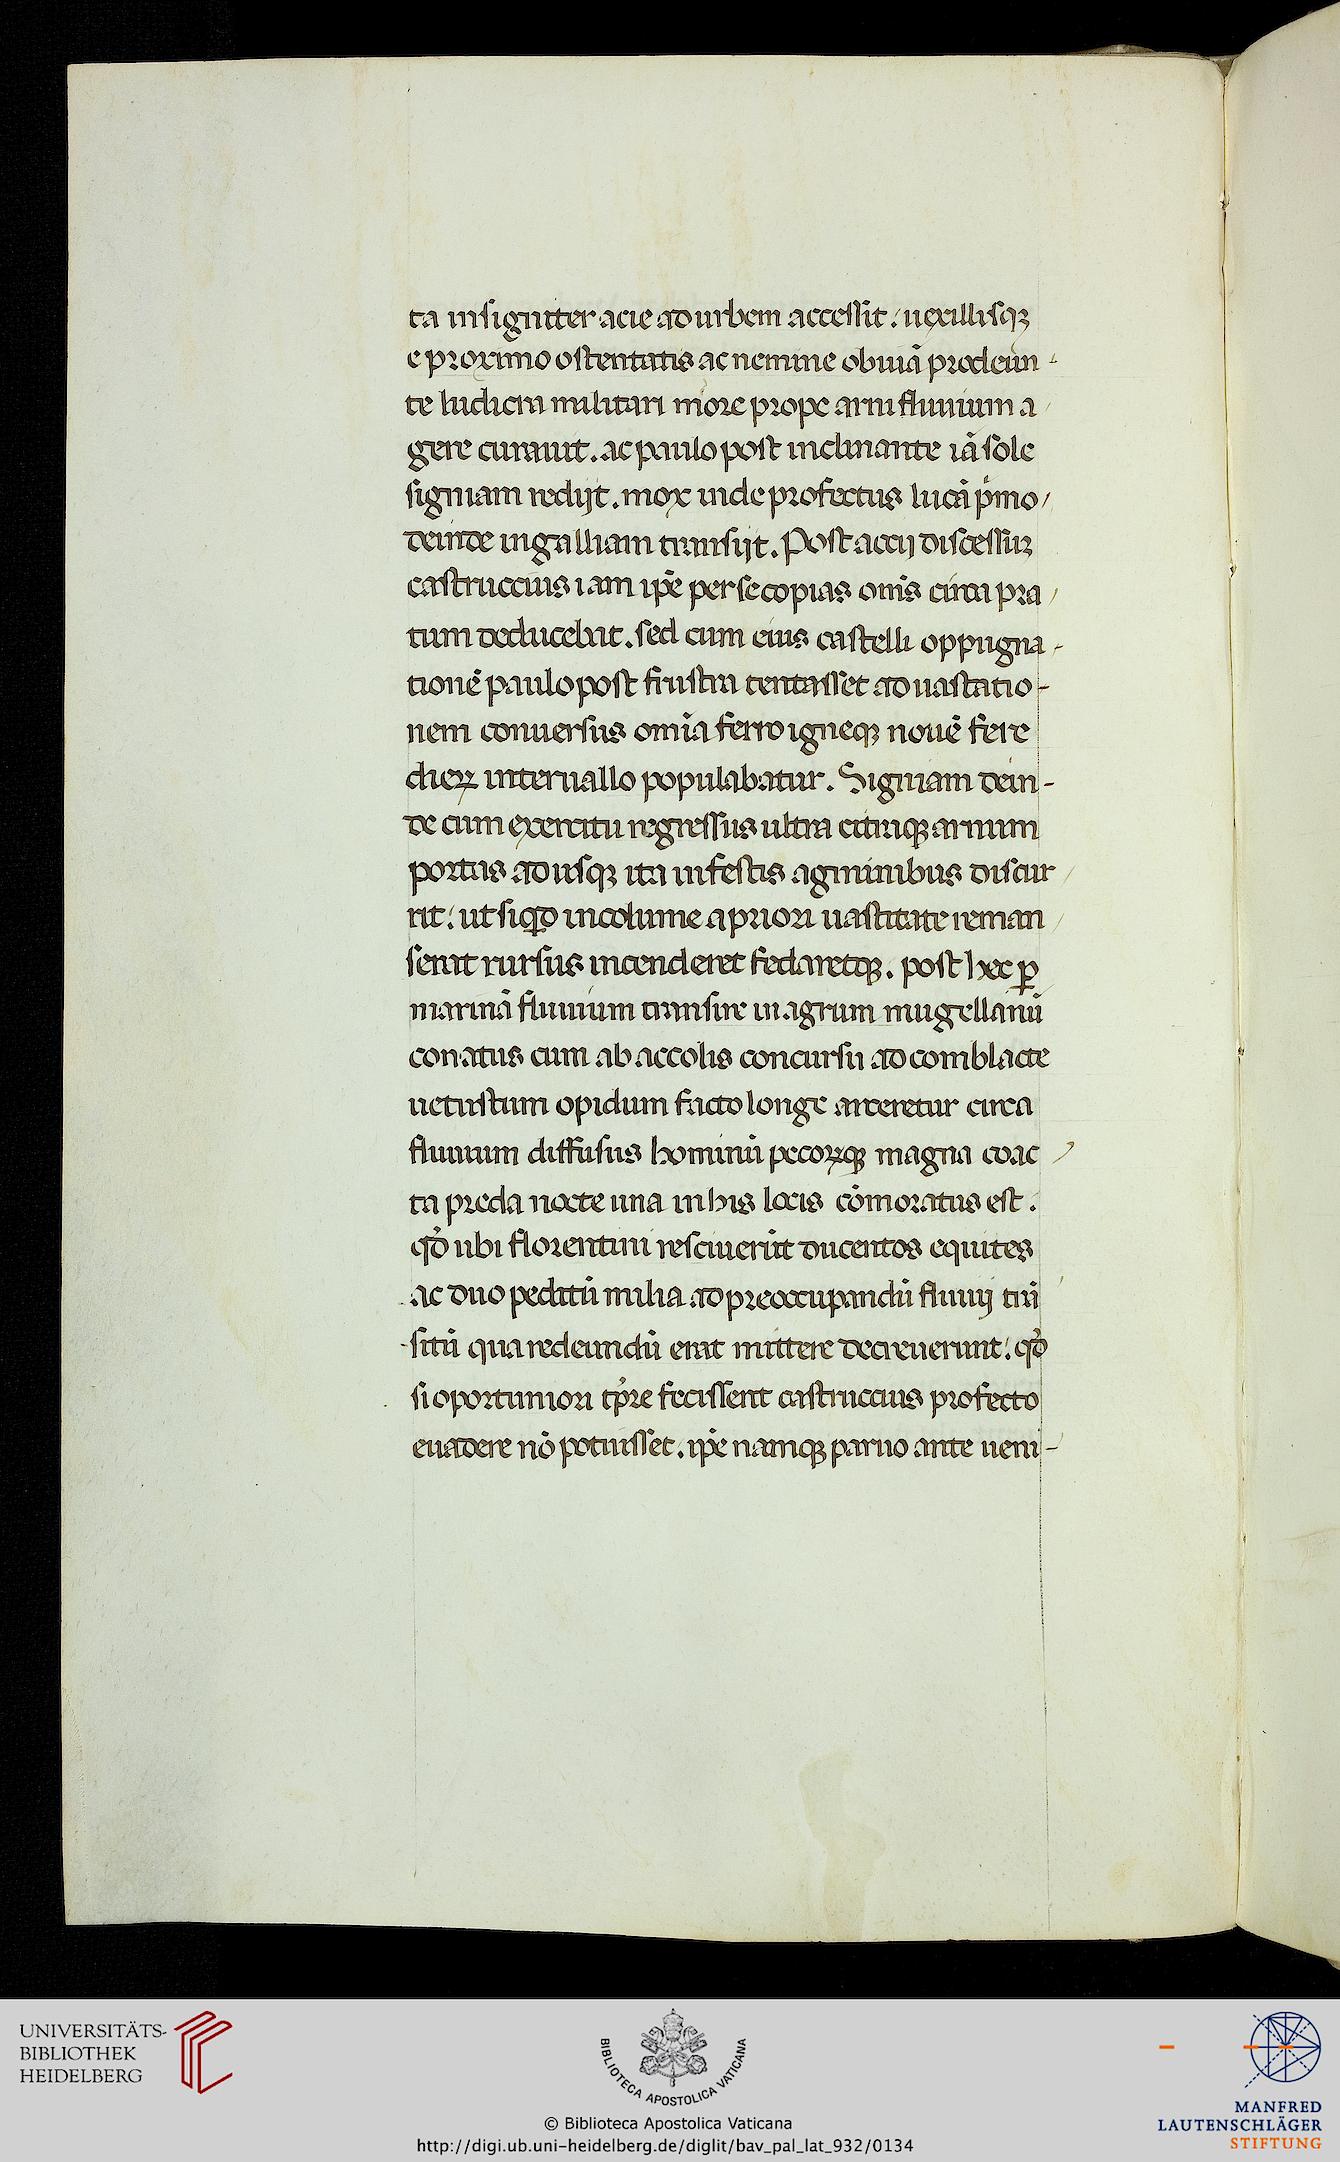 ta insigniter acie ad urbem accessit: uexillisqꝫ
e proximo ostentatis ac nemine obuiā prodeun-
te ludicra militari more prope arni fluuium a/
gere curauit. ac paulo post inclinante iā sole
signiam redijt. mox inde profectus lucā pͥmo/
deinde in galliam transijt. Post accij discessuꝫ
castruccius iam ip̄e per se copias om̄s circa pra/
tum deducebat. sed cum eius castelli oppugna-
tionē paulo post frustra tentasset ad uastatio-
nem conuersus om̄ia ferro igneqꝫ nouē fere
dieꝝ interuallo populabatur. Signiam dein-
de cum exercitu regressus ultra citraqꝫ arnum
portas ad usqꝫ ita infestis agminibus discur/
rit: ut siqͥd incolume a priori uastitate reman/
serat rursus incenderet fedaretqꝫ. post hec ꝑ
marinā fluuium transire in agrum mugellanū
conatus cum ab accolis concursu ad comblacte
uetustum opidum facto longe arceretur circa
fluuium diffusus hominū pecoꝝqꝫ magna coac/
ta preda nocte una in his locis cōmoratus est.
qd̄ ubi florentini resciuerūt ducentos equites
ac duo peditū milia ad preoccupandū fluuij trā/
sitū qua redeundū erat mittere decreuerunt: qd̄
si oportuniori tp̄re fecissent castruccius profecto
euadere nō potuisset. ip̄e namqꝫ paruo ante ueni-
UNIVERSITÄTS-
BIBLIOTHEK
HEIDELBERG
BIBLIOTECA APOSTOLICA VATICANA
© Biblioteca Apostolica Vaticana
http://digi.ub.uni-heidelberg.de/diglit/bav_pal_lat_932/0134
MANFRED
LAUTENSCHLÄGER
STIFTUNG